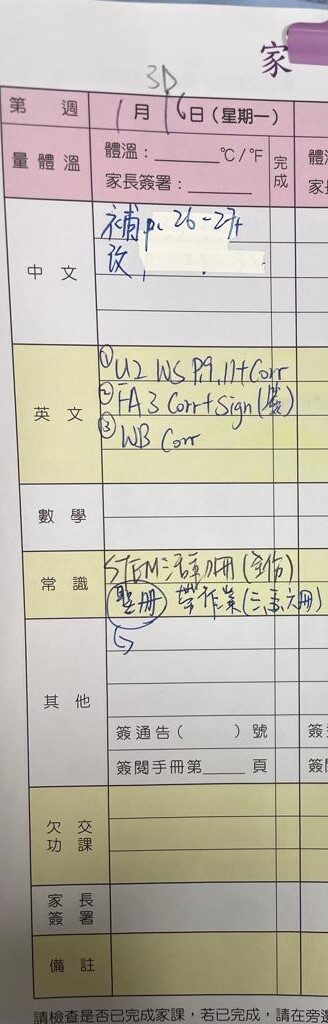 家
3D
第 週 1月16日(星期一)
量體溫
體溫：______℃/℉
家長簽署：______
完成
體溫
家長
中文
補 p. 26-27+
改
英文
① U2 WS P.9, 11+Corr
② FA 3 Corr+Sign(簽)
③ WB Corr
數學
常識
STEM活動冊(全份)
聖冊 帶作業(三、五、六冊)
其他
簽通告( )號
簽閱手冊第____頁
簽
簽
欠交功課
家長簽署
備註
請檢查是否已完成家課，若已完成，請在旁